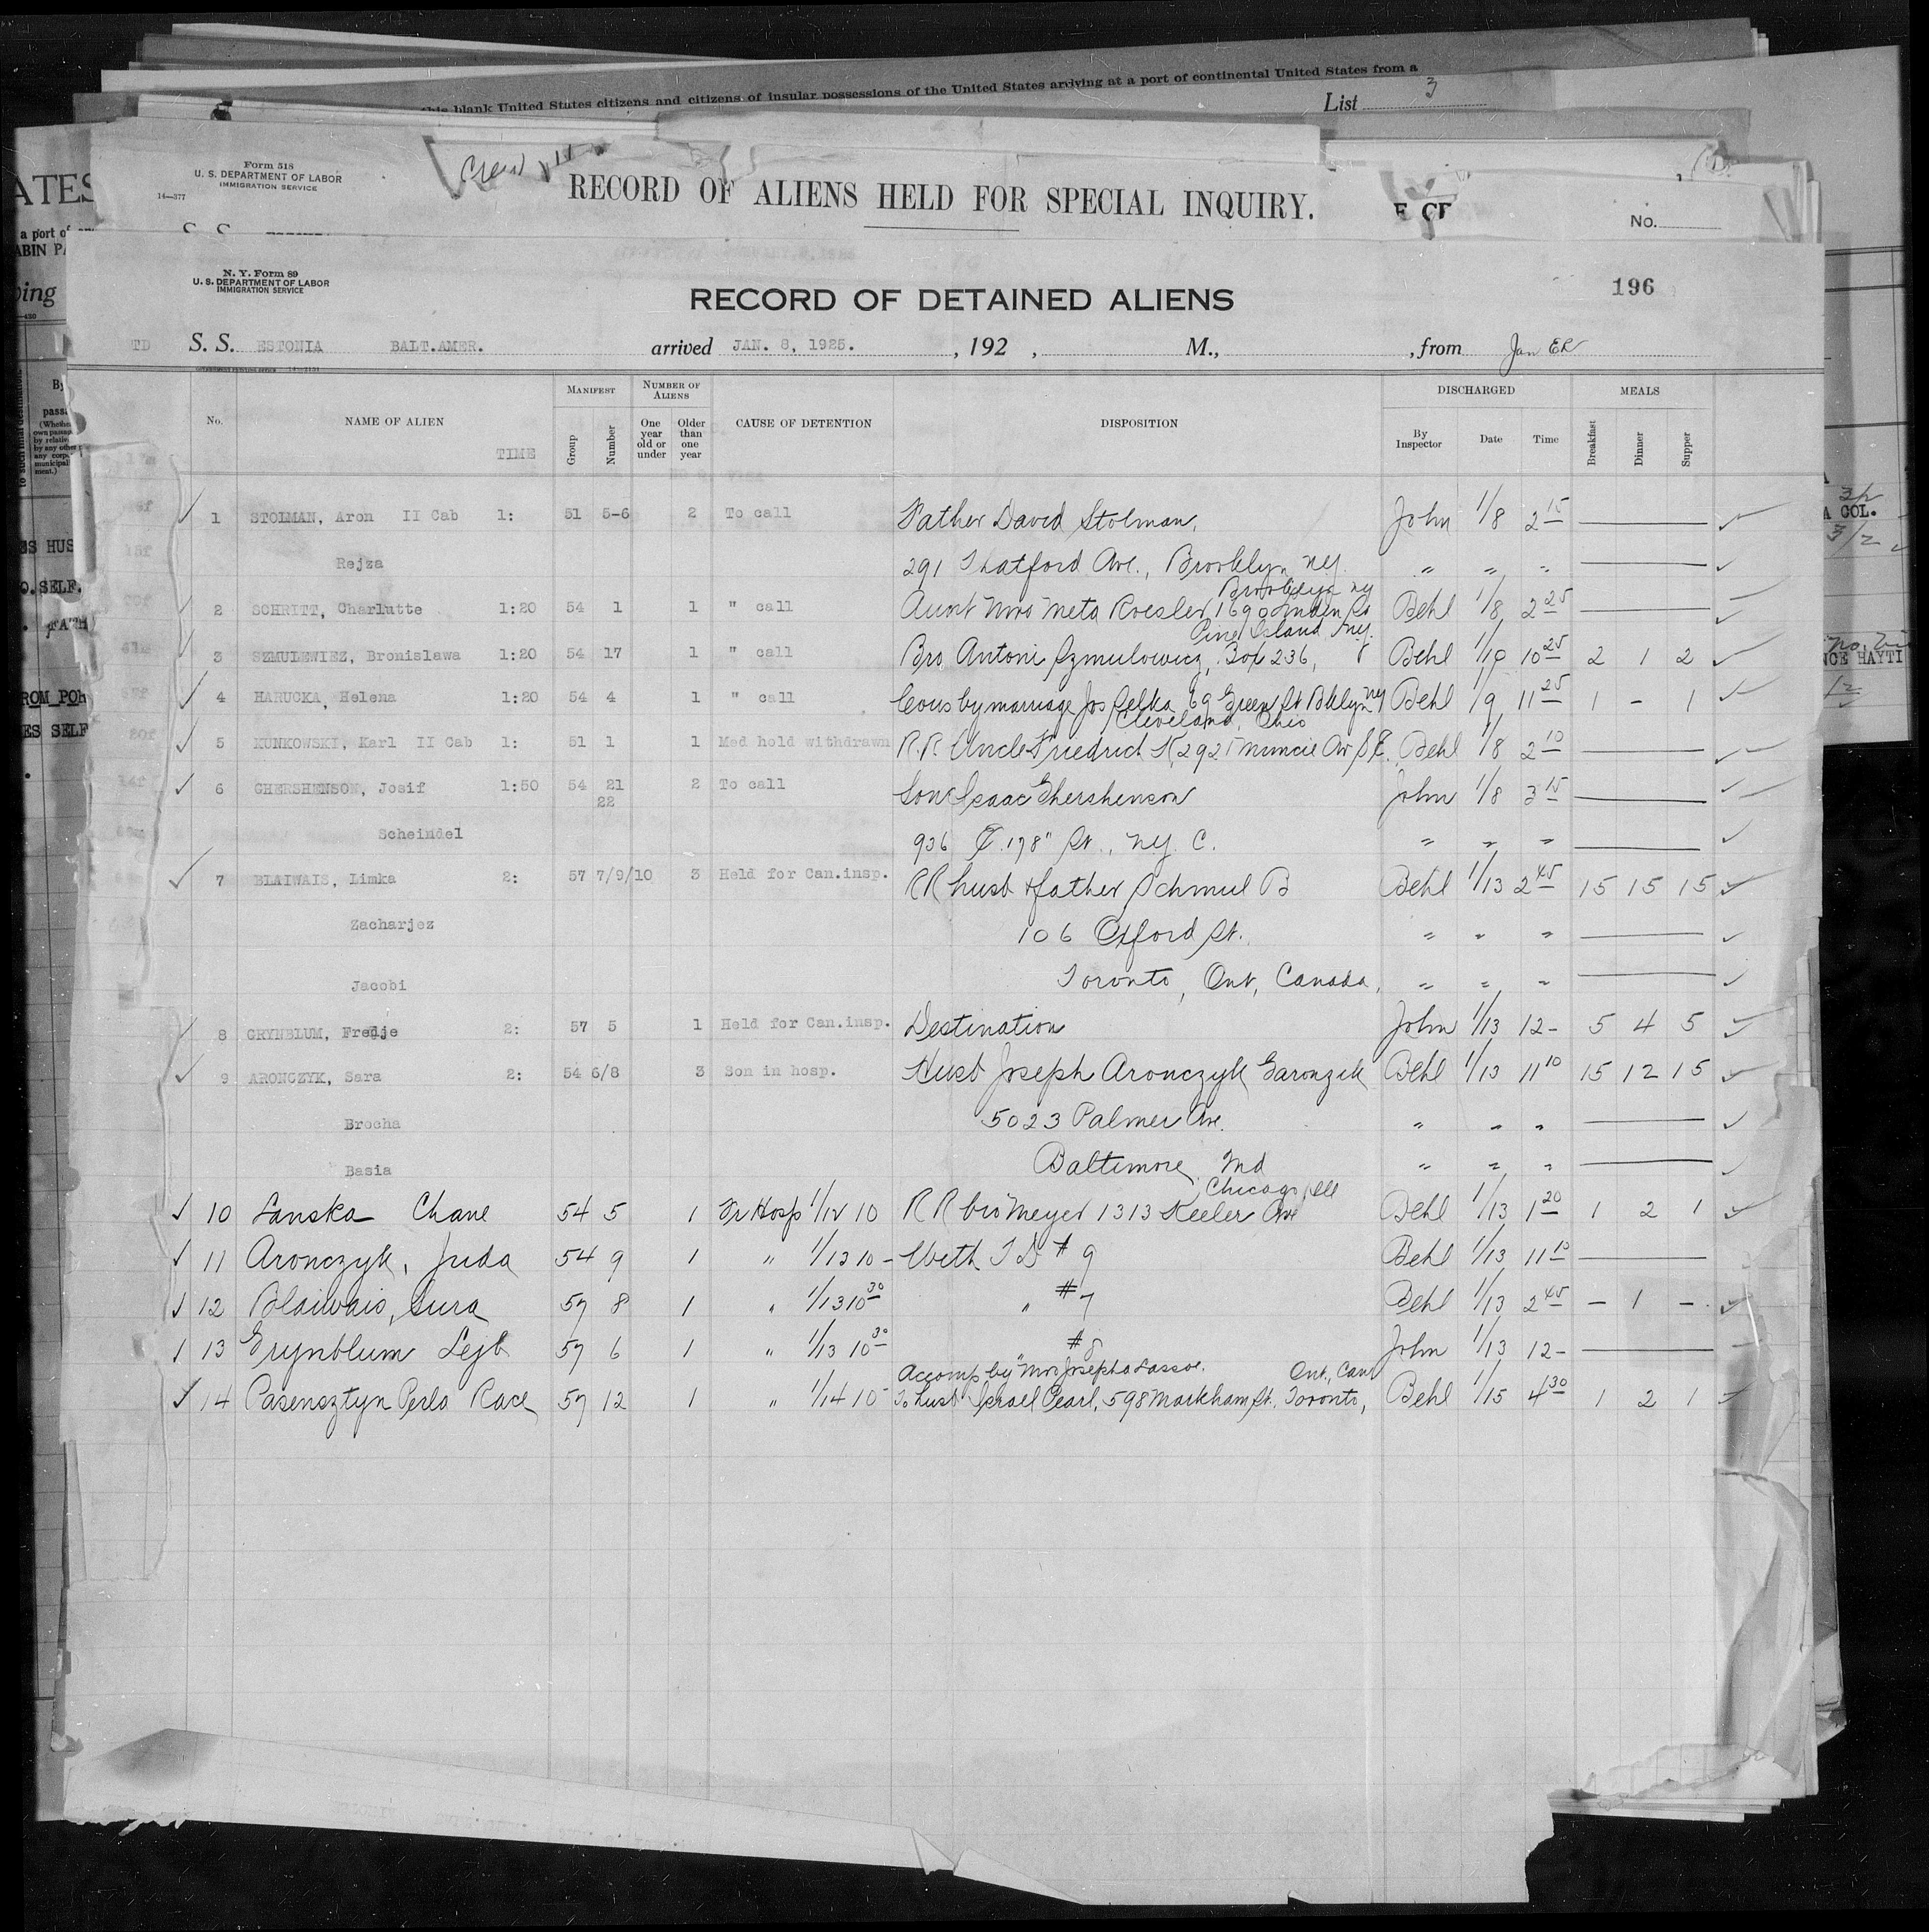 this blank United States citizens and citizens of insular possessions of the United States arriving at a port of continental United States from a
List 3
Form 518
U. S. DEPARTMENT OF LABOR
IMMIGRATION SERVICE
14—377
RECORD OF ALIENS HELD FOR SPECIAL INQUIRY.
No.
N. Y. Form 89
U. S. DEPARTMENT OF LABOR
IMMIGRATION SERVICE
196
RECORD OF DETAINED ALIENS
TD S. S. ESTONIA BALT.AMER. arrived JAN. 8, 1925. , 192 , M., , from
MANIFEST NUMBER OF ALIENS DISCHARGED MEALS
No. NAME OF ALIEN TIME Group Number One year old or under Older than one year CAUSE OF DETENTION DISPOSITION By Inspector Date Time Breakfast Dinner Supper
1 STOLMAN, Aron II Cab 1: 51 5-6 2 To call Father David Stolman, John 1/8 2 15
Rejza 291 Thatford Ave., Brooklyn NY. " " "
Brooklyn NY
2 SCHRITT, Charlutte 1:20 54 1 1 " call Aunt Mrs Meta Roesler, 1690 Linden Behl 1/8 2 25
Pine Island NY.
3 SZMULEWIEZ, Bronislawa 1:20 54 17 1 " call Bro Antoni Szmulowicz, Box 236, Behl 1/10 10 25 2 1 2
4 HARUCKA, Helena 1:20 54 4 1 " call Cous by marriage Jos Celka 69 Green St Bklyn NY Behl 1/9 11 25 1 - 1
Cleveland, Ohio
5 KUNKOWSKI, Karl II Cab 1: 51 1 1 Med hold withdrawn R.R. Uncle Friedrich K, 2925 Muncie Av S.E. Behl 1/8 2 10
6 GHERSHENSON, Josif 1:50 54 21 22 2 To call Son Isaac Ghershenson John 1/8 3 15
Scheindel 936 E. 178" St., NY. C. " " "
7 BLAIWAIS, Limka 2: 57 7/9/10 3 Held for Can.insp. RR husb & father Schmul B Behl 1/13 2 45 15 15 15
Zacharjez 106 Oxford St. " " "
Jacobi Toronto, Ont, Canada, " " "
8 GRYNBLUM, Fredje 2: 57 5 1 Held for Can.insp. Destination John 1/13 12- 5 4 5
9 ARONCZYK, Sara 2: 54 6/8 3 Son in hosp. Husb Joseph Aronczyk Garonzik Behl 1/13 11 10 15 12 15
Brocha 5023 Palmer Ave. " " "
Basia Baltimore, Md " " "
Chicago, Ill
10 Lanska Chane 54 5 1 Fr Hosp 1/12 10 RR bro Meyer 1313 Keeler Ave Behl 1/13 1 20 1 2 1
11 Aronczyk, Juda 54 9 1 " 1/13 10 - With T D # 9 Behl 1/13 11 10
12 Blaiwais, Sura 57 8 1 " 1/13 10 30 " #7 Behl 1/13 2 45 - 1 -
13 Grynblum Lejb 57 6 1 " 1/13 10 30 " #8 John 1/13 12-
Accomp by Mrs Ont, Can
14 Pasensztyn Perla Race 57 12 1 " 1/14 10- To husb Israel Pearl, 598 Markham St. Toronto, Behl 1/15 4 30 1 2 1